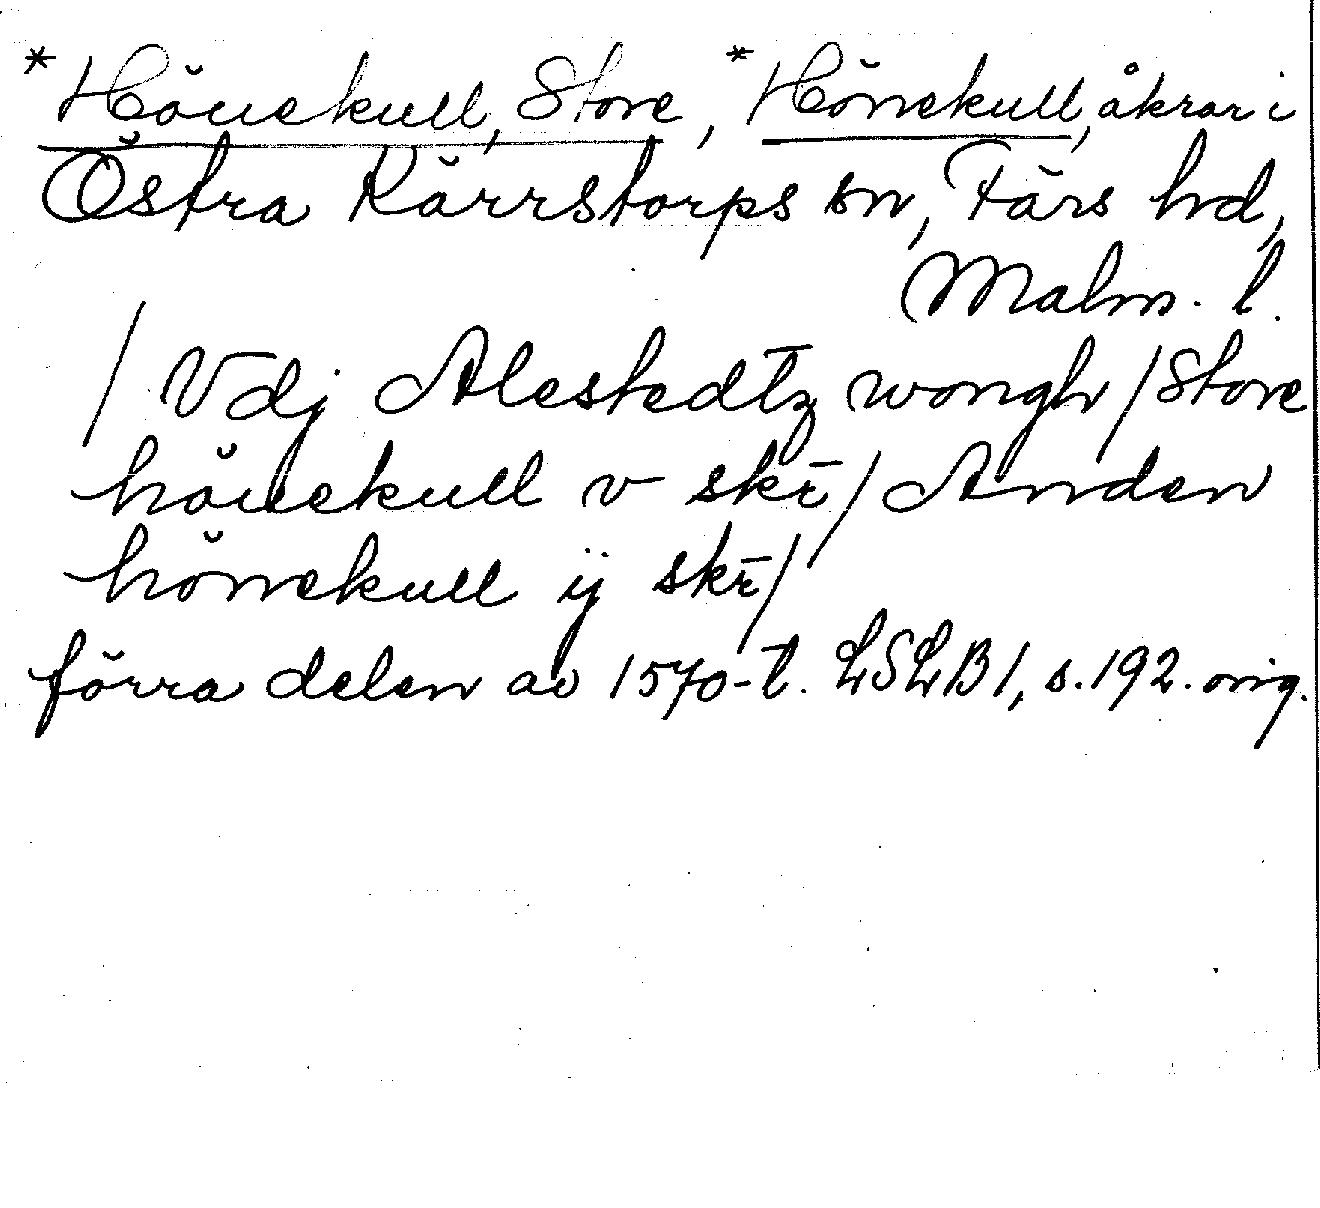 *Hönekull, Store, *Hönekull, åkrar i
Östra Kärrstorps sn, Färs hd,
Malm. l.
/ Vdj Alestedtz wongh / Store
hönekull v skr̄ / Anden
hönekull ij skr̄ /
förra delen av 1570-t. LSLB 1, s. 192. orig.